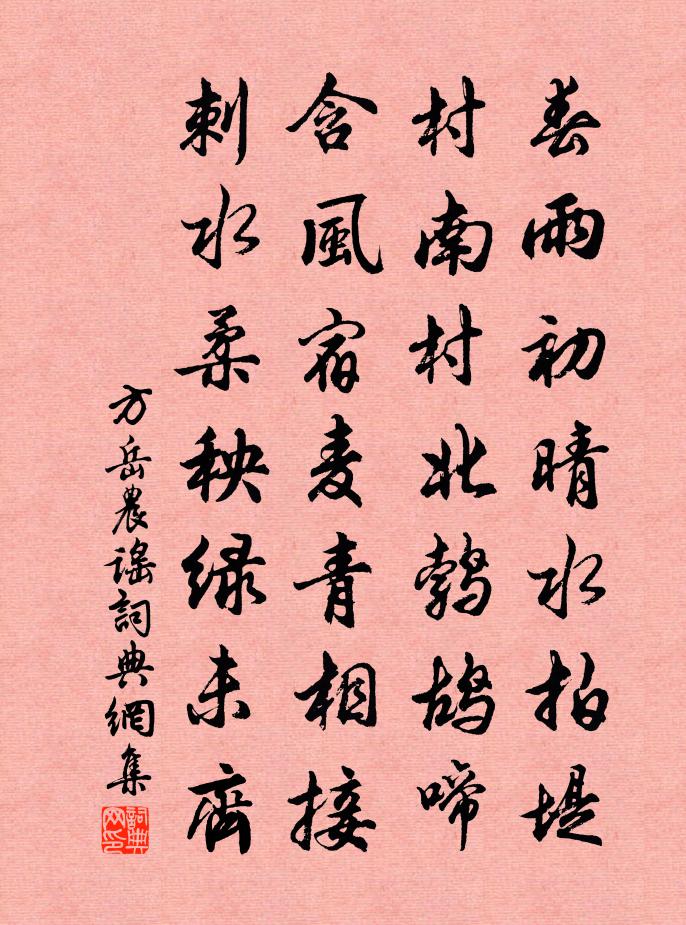 春雨初晴水拍堤
村南村北鹁鴣啼
含風宿麦青相接
刺水柔秧緑未齊
方岳農謡詞典網集
詞典网印